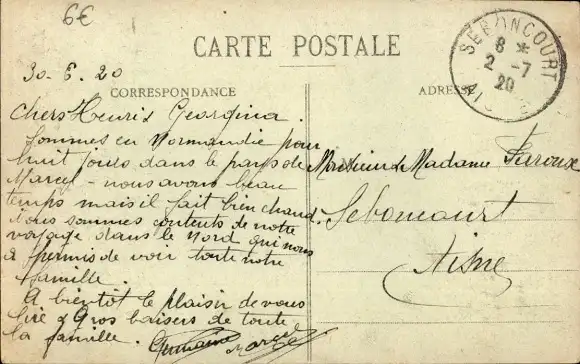 6€
CARTE POSTALE
30-6.20
CORRESPONDANCE
ADRESSE
SEBONCOURT
8 *
2 -7
20
AISNE
Chers Henri & Georgina.
Sommes en Normandie pour
huit jours dans le pays de
Marcel - nous avons beau
temps mais il fait bien chaud.
Nous sommes contents de notre
voyage dans le Nord qui nous
a permis de voir toute notre
famille
A bientôt le plaisir de vous
lire & Gros baisers de toute
la famille.
Germaine Marcel
Monsieur & Madame
Seboncourt
Aisne